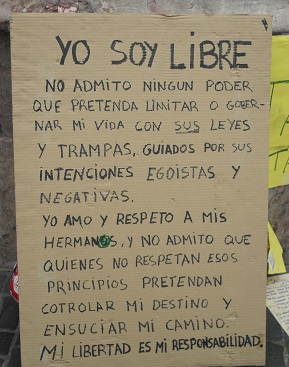 YO SOY LIBRE
NO ADMITO NINGUN PODER
QUE PRETENDA LIMITAR O GOBER-
NAR MI VIDA CON SUS LEYES
Y TRAMPAS, GUIADOS POR SUS
INTENCIONES EGOISTAS Y
NEGATIVAS.
YO AMO Y RESPETO A MIS
HERMANOS, Y NO ADMITO QUE
QUIENES NO RESPETAN ESOS
PRINCIPIOS PRETENDAN
COTROLAR MI DESTINO Y
ENSUCIAR MI CAMINO.
MI LIBERTAD ES MI RESPONSABILIDAD.